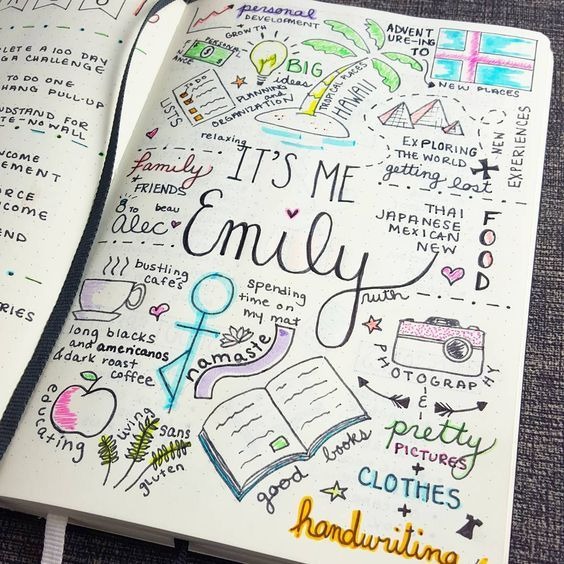 LETE A 100 DAY
GA CHALLENGE
TO DO ONE
HANG PULL-UP
NDSTAND FOR
TE-NO WALL
COME
EMENT
ORCE
COME
END
RIES
personal
DEVELOPMENT
+
GROWTH
PERSONAL
NANCE
BIG
ideas
PLANNING
and
ORGANIZATION
LISTS
relaxing
TROPICAL PLACES
HAWAII
ADVENT
URE-ING
TO
NEW PLACES
NEW
EXPERIENCES
EXPLORING
THE WORLD
getting lost
IT'S ME
Emily
ruth
family
+
FRIENDS
TO beau
alec
THAI
JAPANESE
MEXICAN
NEW
FOOD
bustling
cafes
long blacks
and americanos
& dark roast
coffee
spending
time on
my mat
namaste
educating
living
sans
gluten
good books
PHOTOGRAPHY
pretty
PICTURES
+
CLOTHES
+
handwriting